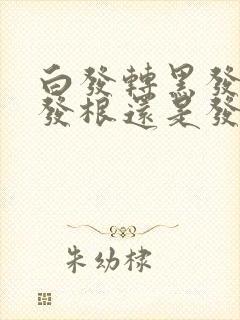 白發轉黑發
發根還是發
朱幼棣